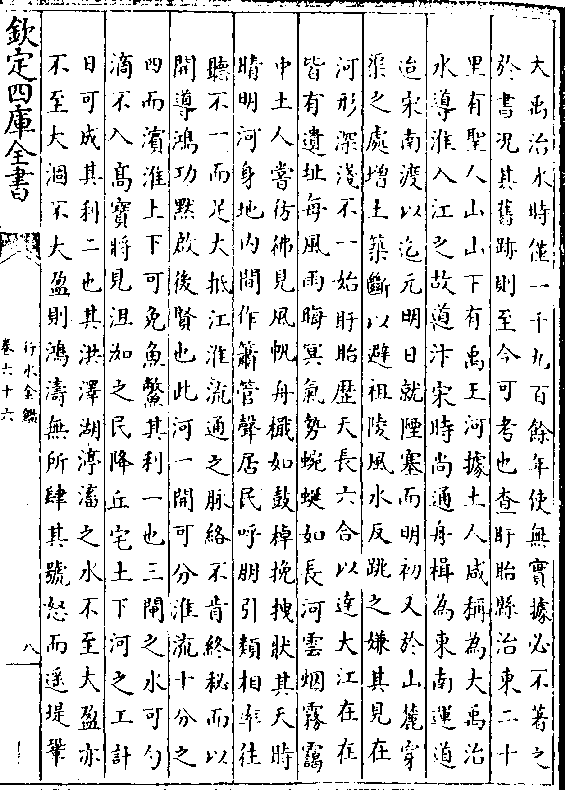 大禹治水時僅一千九百餘年使無實據必不著之
於書況其舊跡則至今可考也查盱眙縣治東二十
里有聖人山山下有禹王河據土人咸稱為大禹治
水導淮入江之故道汴宋時尚通舟楫為東南運道
迨宋南渡以迄元明日就陻塞而明初又於山麓穿
渠之處增土築斷以避祖陵風水反跳之嫌其見在
河形深淺不一始盱眙歴天長六合以達大江在在
皆有遺址每風雨晦冥氣勢蜿蜒如長河雲烟霧靄
中土人嘗彷彿見風帆舟檝如鼓棹挽拽狀其天時
晴明河身地内間作簫管聲居民呼朋引類相率往
聽不一而足大抵江淮流通之脉絡不肯終秘而以
開導鴻功黙啟後賢也此河一開可分淮流十分之
四而濱淮上下可免魚鱉其利一也三閘之水可勺
滴不入髙寳將見沮洳之民降丘宅土下河之工計
日可成其利二也其洪澤湖渟瀦之水不至大盈亦
不至大涸不大盈則鴻濤無所肆其號怒而遥堤鞏
欽定四庫全書
行水金鑑
卷六十六
八